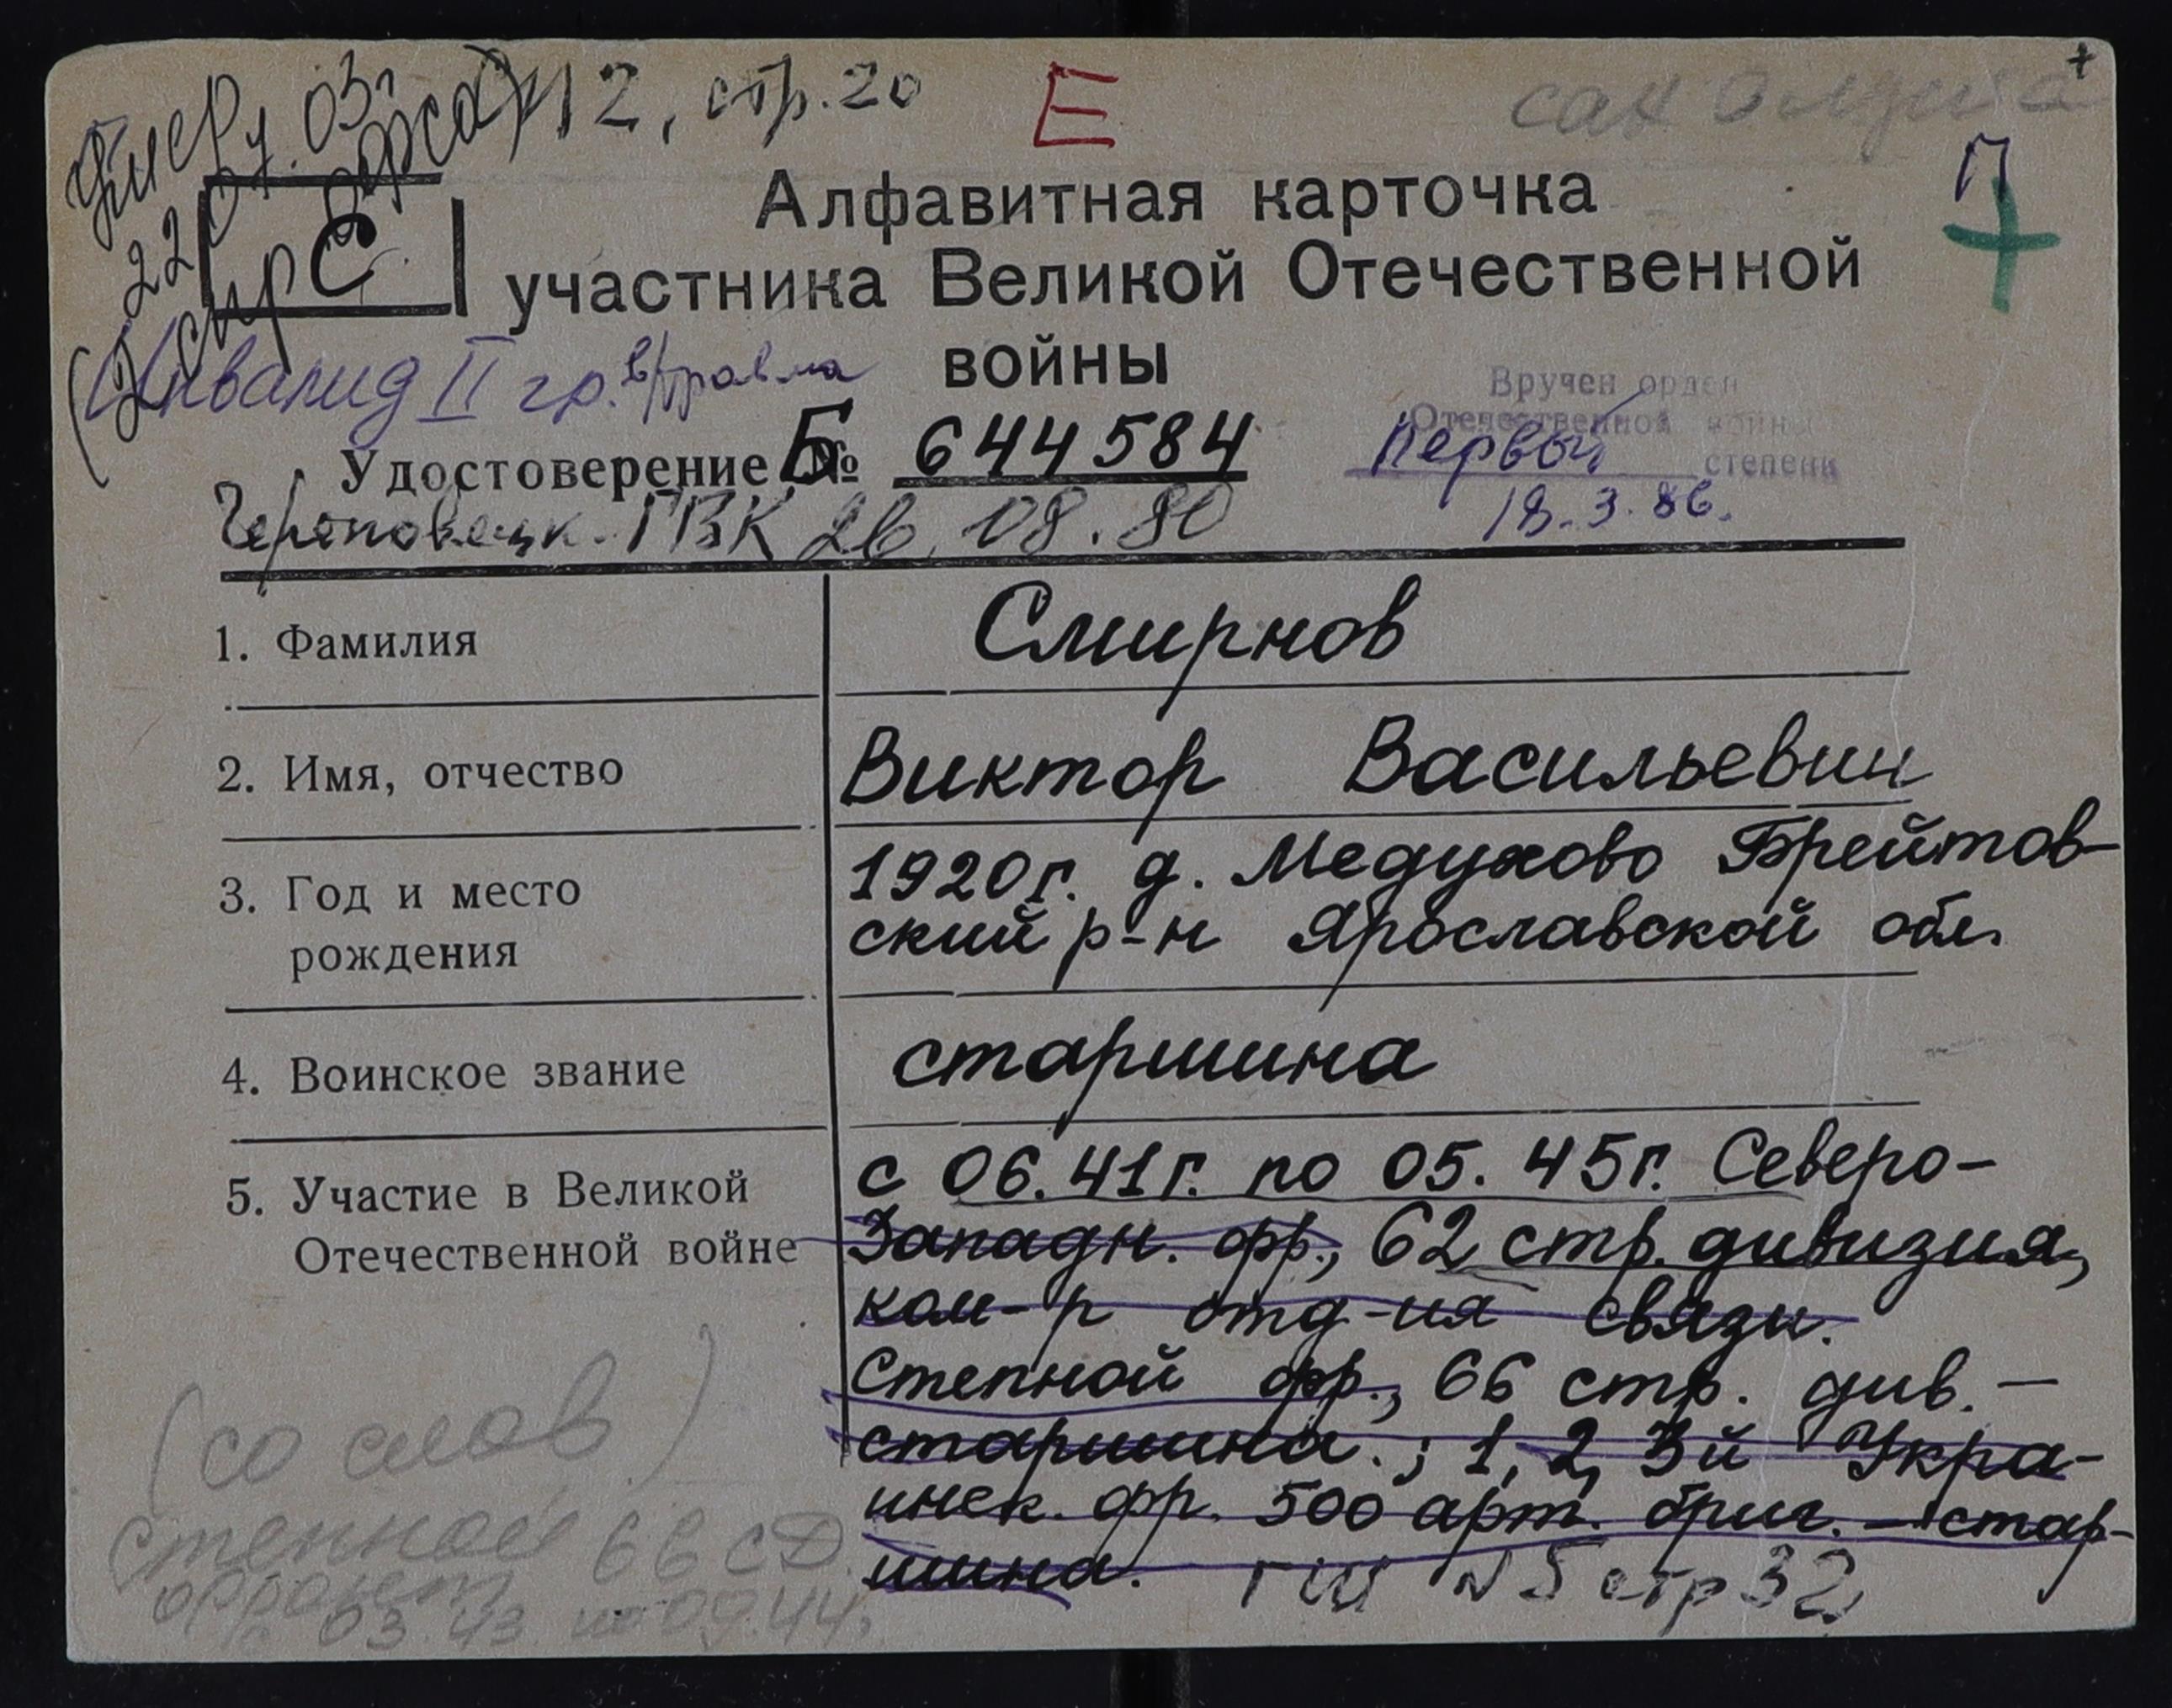 Умер 12, стр. 20 Е
22.07.03г.
С П
Алфавитная карточка
участника Великой Отечественной
войны
Инвалид II гр. в/травма
Вручен орден
Отечественной войны
первой степени
18.3.86.
Удостоверение Б № 644584
Череповецк. ГВК 26.08.80
1. Фамилия Смирнов
2. Имя, отчество Виктор Васильевич
3. Год и место 1920г. д. Медухово Брейтов-
рождения ский р-н Ярославской обл.
4. Воинское звание старшина
5. Участие в Великой с 06.41г. по 05.45г. Северо-
Отечественной войне Западн. фр., 62 стр. дивизия,
ком-р отд-ия связи.
Степной фр., 66 стр. див. —
старшина.; 1, 2, 3й Укра-
инск. фр. 500 арт. бриг. — стар-
шина. ГШ №5 стр 32
(со слов)
Степной 66 СД
фронт
03.43 по 09.44г.